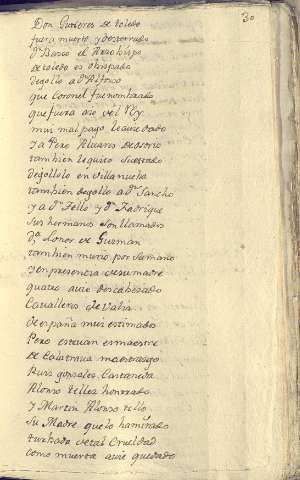 30
Don Gutierres de toledo
fuera muerto y desterrado
Dn Basco el Arzobispo
de toledo es obispado
degollo a Dn Alfonso
que Coronel fue nombrado
que fuera aio del Rey
mui mal pago le avie dado
y a Pero Alvares de osorio
tambien le quito su estado
degollolo en Villanubla
tambien degollo a Dn Sancho
y a Dn Tello y Dn Fadrique
sus hermanos son llamados
Da Lonor de Gusman
tambien murio por su mano
y en presencia de su madre
quatro avie descabezado
Cavalleros de Valia
de españa mui estimados
Pero estevan er maestre
de Calatrava maestrasgo
Ruis gonsales Castaneda
Alonso telles honrrado
y Martin Alonso tello
su Madre que lo ha mirado
turbada de tal Crueldad
como muerta avie quedado